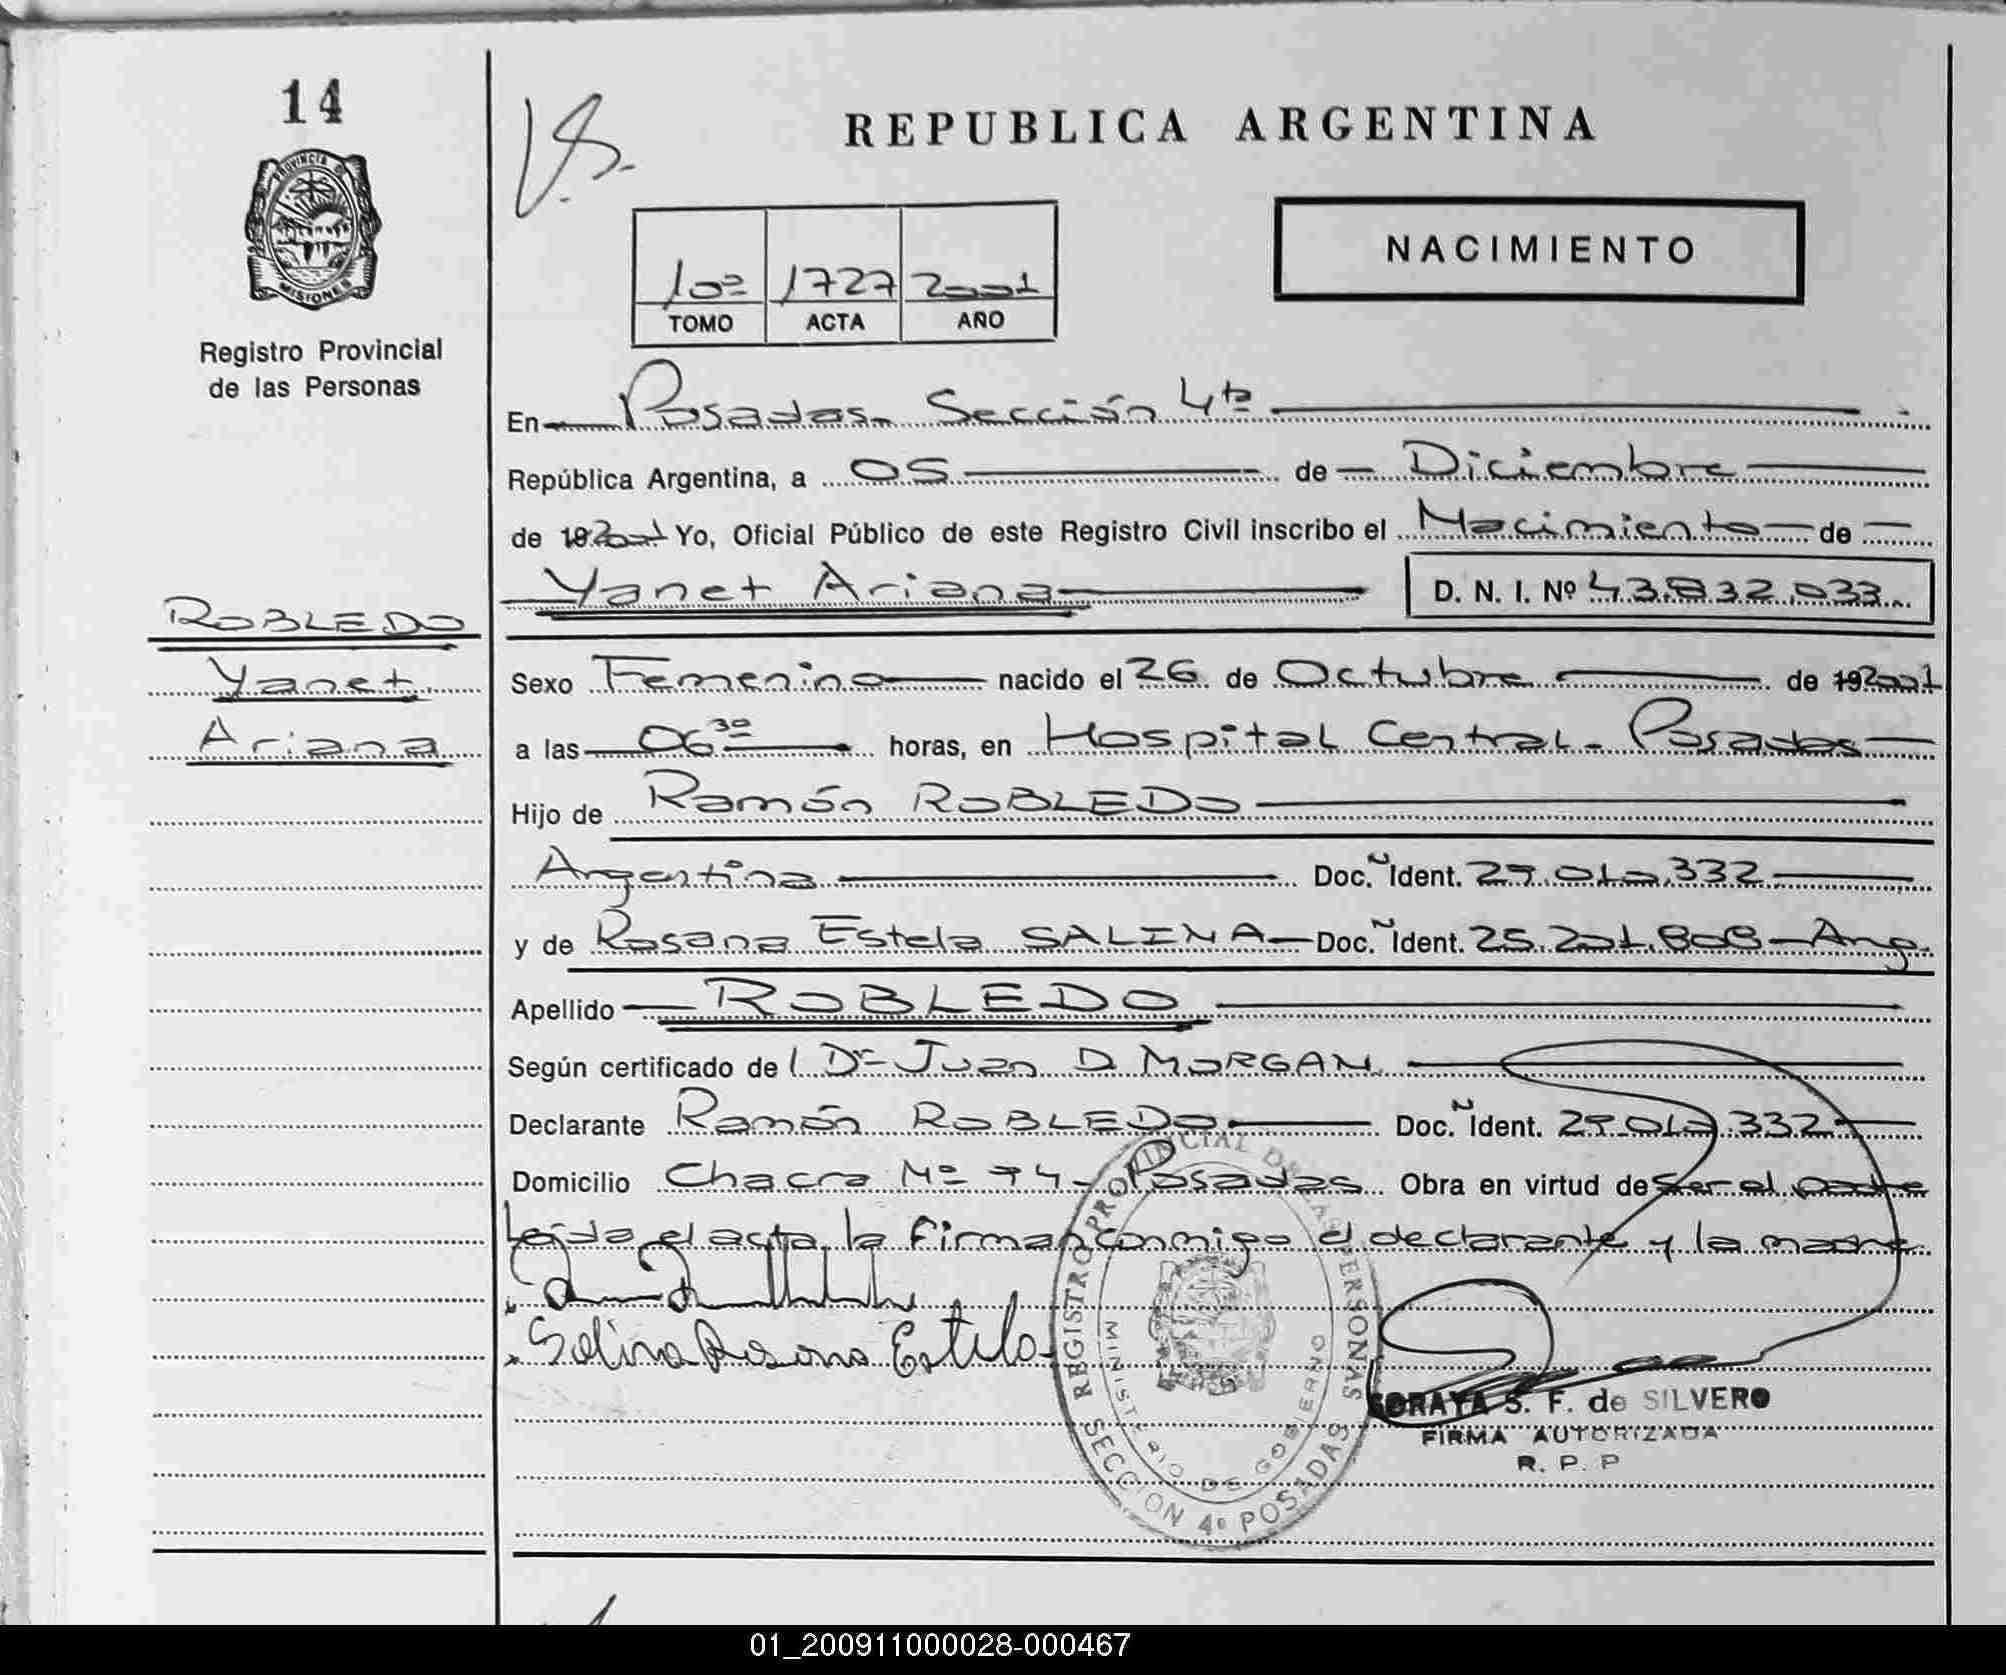 14
PROVINCIA DE
MISIONES
Registro Provincial
de las Personas
ROBLEDO
Yanet
Ariana
REPUBLICA ARGENTINA
10º 1727 2001
TOMO ACTA AÑO
NACIMIENTO
En Posadas Sección 4ta
República Argentina, a 05 de Diciembre
de 192001 Yo, Oficial Público de este Registro Civil inscribo el Nacimiento de
Yanet Ariana D. N. I. Nº 43.832.033
Sexo Femenino nacido el 26 de Octubre de 192001
a las 06 30 horas, en Hospital Central - Posadas
Hijo de Ramón ROBLEDO
Argentina Doc. Ñ Ident. 29.010.332
y de Rosana Estela SALINA Doc. Ñ Ident. 25.201.808 - Arg.
Apellido ROBLEDO
Según certificado de l Dr Juan D. MORGAN
Declarante Ramón ROBLEDO Doc. Ñ Ident. 29.010.332
Domicilio Chacra Nº 74 - Posadas Obra en virtud de ser el padre
Leída el acta, la firman conmigo el declarante y la madre
Salina Rosana Estela
REGISTRO PROVINCIAL DE LAS PERSONAS
MINISTERIO DE GOBIERNO
SECCION 4º POSADAS
SORAYA S. F. de SILVERO
FIRMA AUTORIZADA
R. P. P
01_200911000028-000467